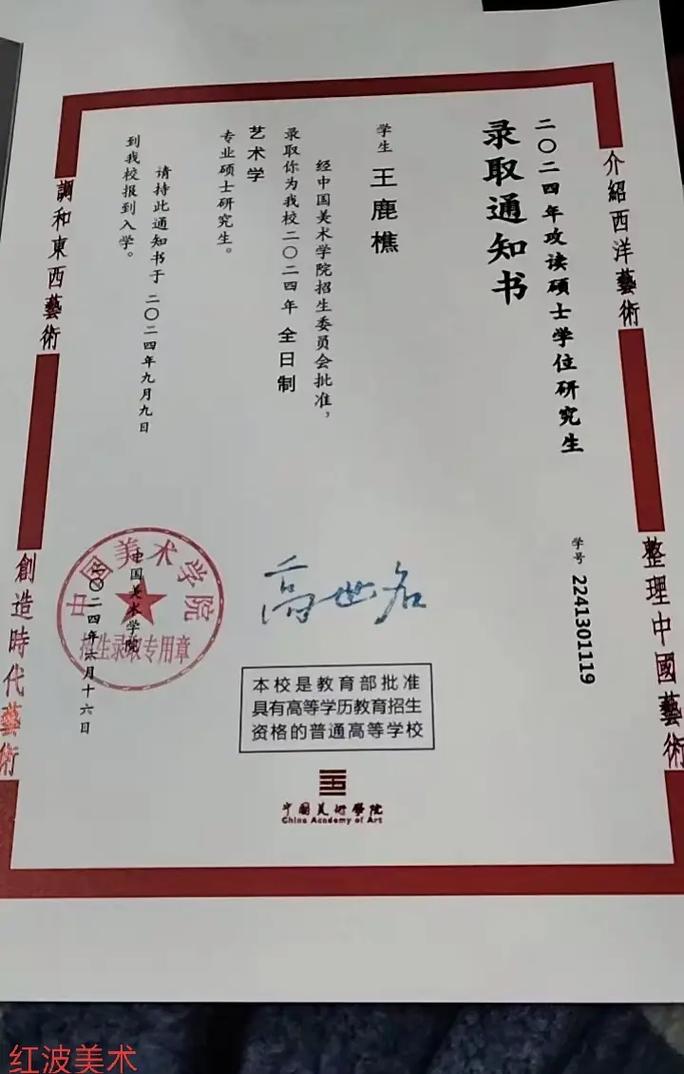 二〇二四年攻读硕士学位研究生
录取通知书
学号 2241301119
学生 王鹿樵
经中国美术学院招生委员会批准，
录取你为我校二〇二四年 全日制
艺术学
专业硕士研究生。
请持此通知书于 二〇二四年九月九日
到我校报到入学。
高世名
中国美术学院
二〇二四年六月十六日
中国美术学院
招生录取专用章
本校是教育部批准
具有高等学历教育招生
资格的普通高等学校
中國美術學院
China Academy of Art
介紹西洋藝術
整理中國藝術
調和東西藝術
創造時代藝術
红波美术